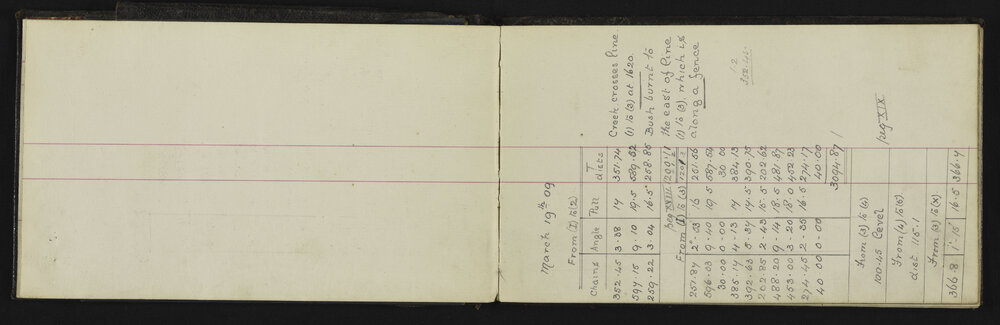 March 19th 09
From (1) to (2)
Chains Angle Pull T dists
352.45 3.38 14 351.74 Creek crosses line
597.15 9.10 19.5 589.52 (1) to (3) at 1620.
259.22 3.04 16.5 258.85 Bush burnt to
peg XVIII the east of line
From (1) to (3) (1) to (3), which is
251.87 2°.53 16 251.56 along a fence
596.03 9.40 19.5 587.54
30.00 0.00 30.00
385.14 4.13 14 384.13 12
392.63 5.34 14.5 390.75 352.45
202.85 2.43 15.5 202.62
488.20 9.14 18.5 481.87
453.00 3.20 18.0 452.23
274.45 2.35 16.5 274.17
40.00 0.00 40.00
3094.87 /
From (3) to (4)
100.45 Level
peg XIX
From (4) to (5)
dist 115.1
From (3) to (x)
366.8 1°.15' 16.5 366.7